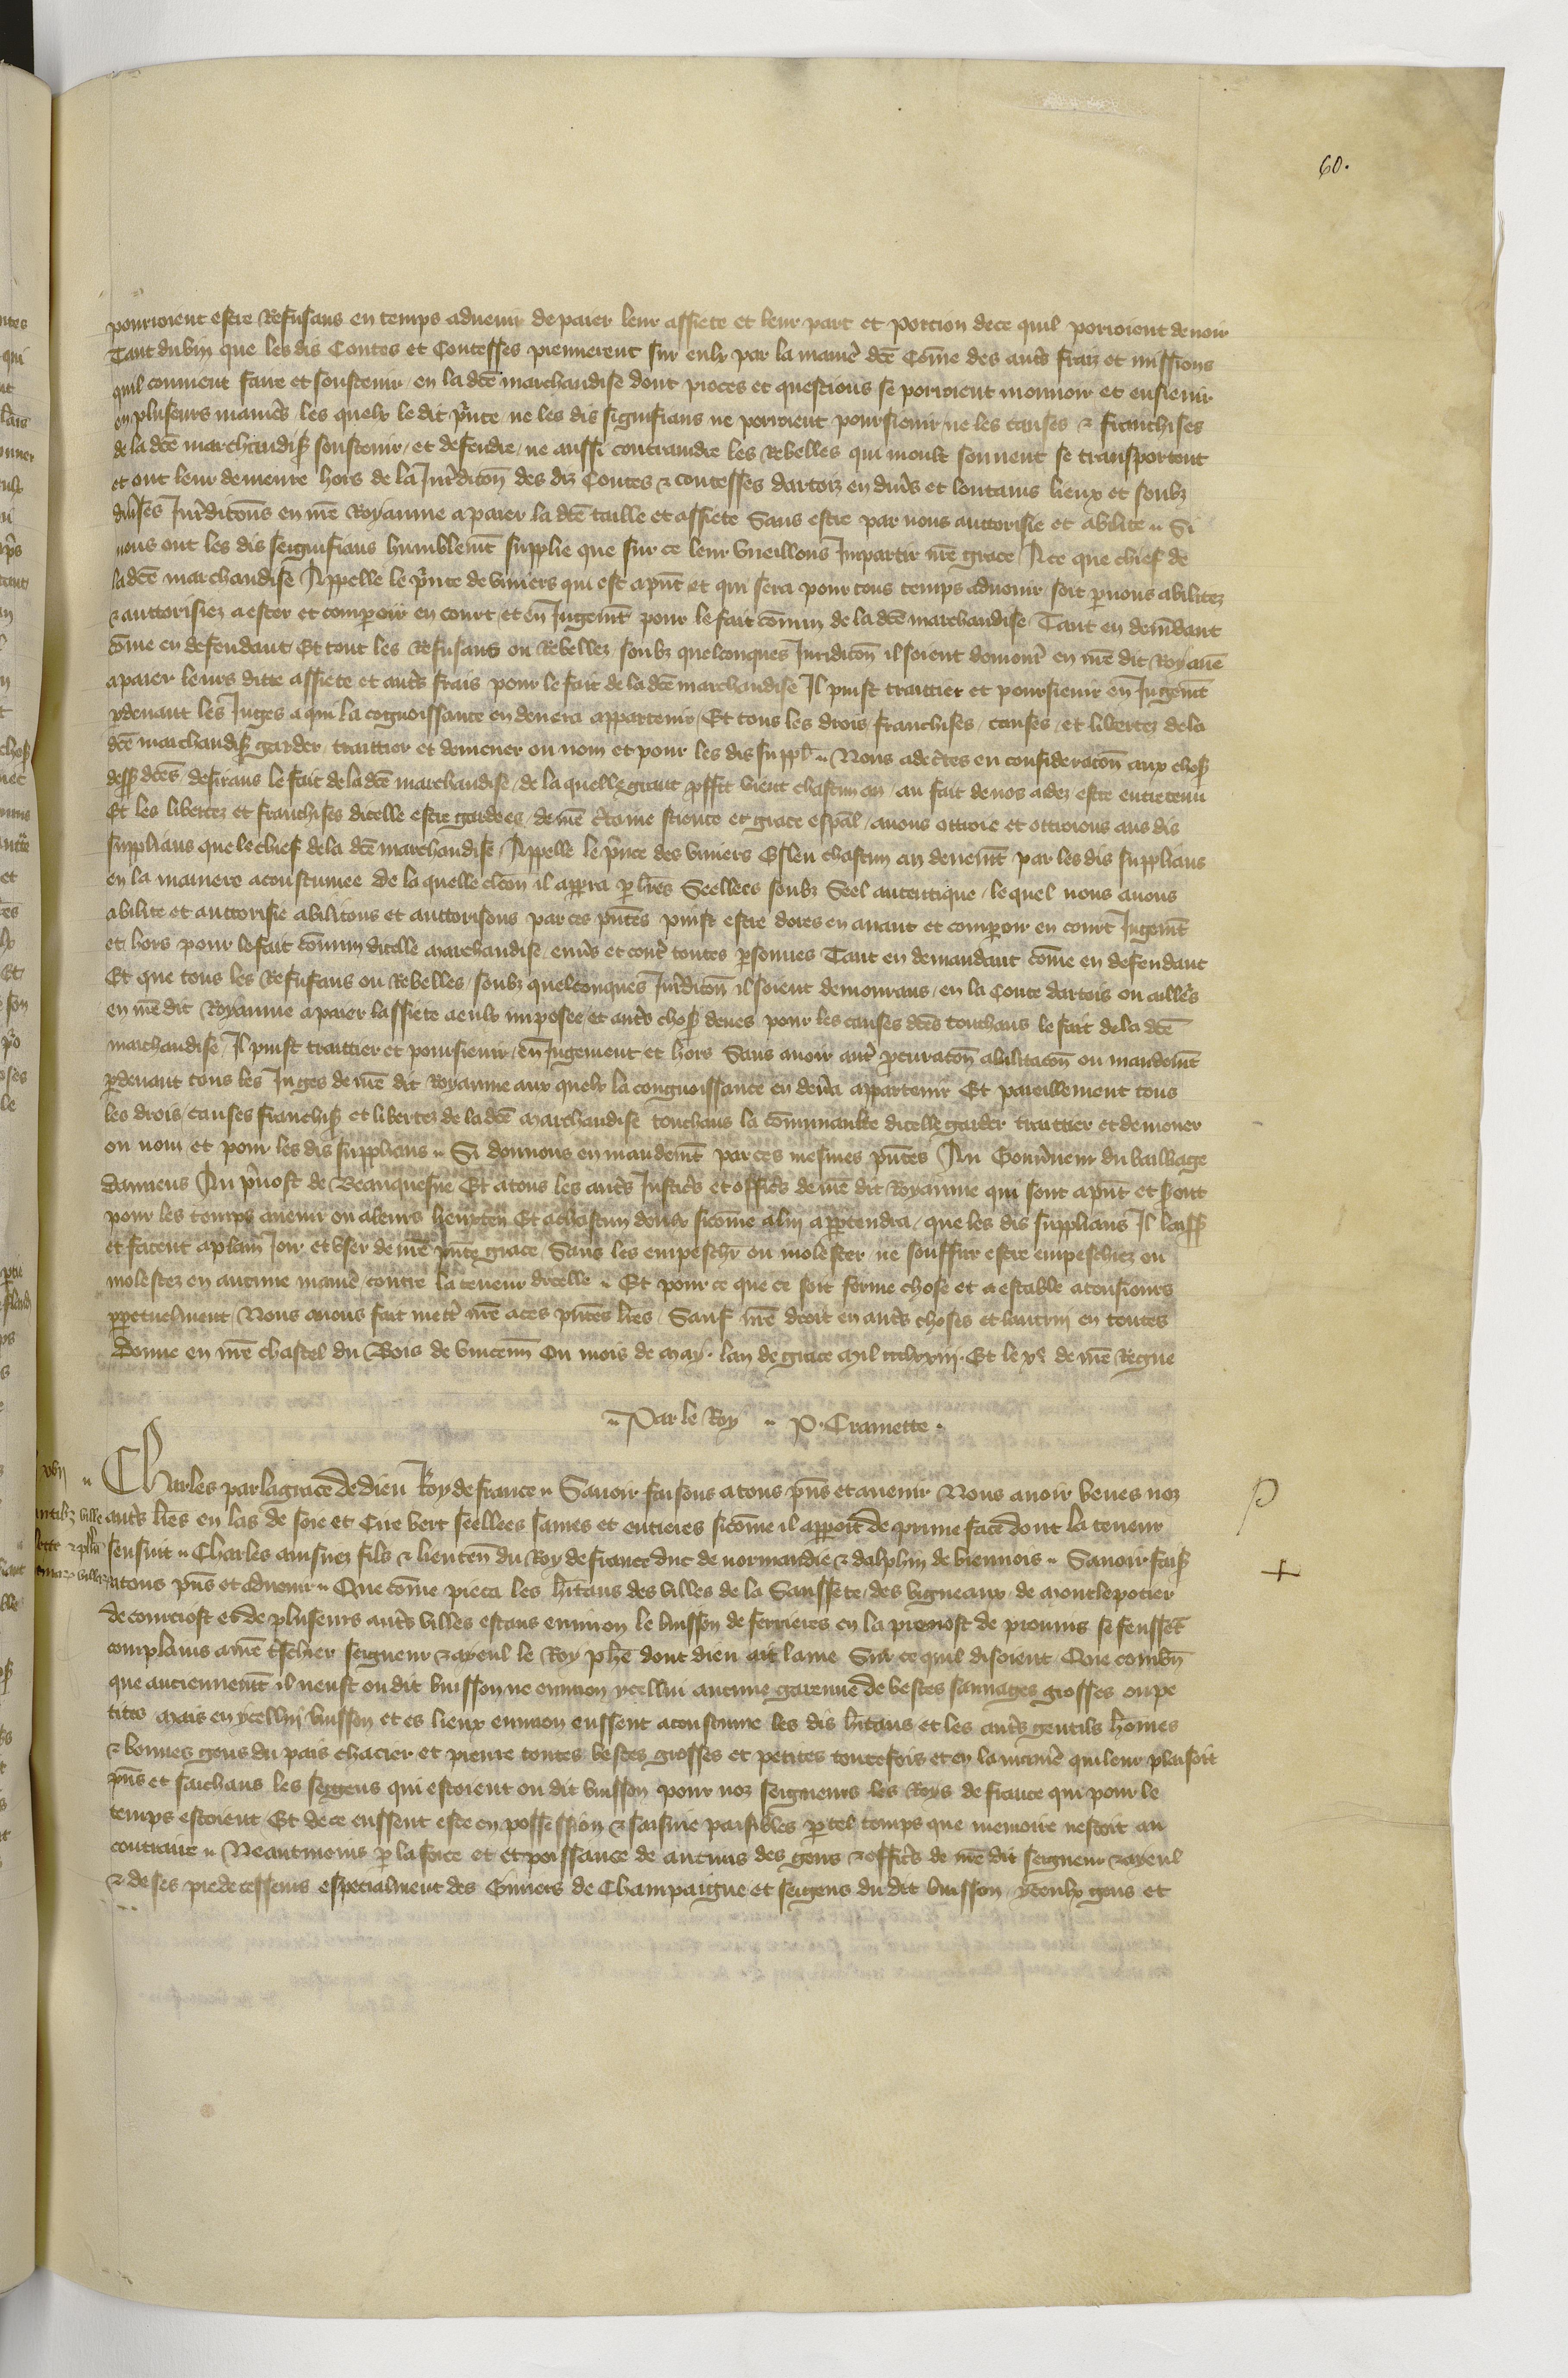 60.
pourroient estre Refusans en temps advenir de paier leur assiete et leur part et porcion de ce quil porroient devoir
Tant du vin que les dis Contes et Contesses prennerent sur eulx par la manie dce Come des auts fraiz et missions
quil convient faire et soustenir en la dce marchandise dont proces et questions se porroient mouvoir et ensievir
en pluseurs manies les quelx le dit pnce ne les dis signifians ne porroient poursievir ne les causes & franchises
de la dce marchandis soustenir et defendre ne aussi contraindre les Rebelles qui moult souvent se transportent
et ont leur demeure hors de la Juridicon des diz Contes & contesses dartoiz en divs et lontains lieux et soubz
divses Juridicons en nre Royaume a paier la dce taille et assiete Sans estre par nous auttorisie et abilite Si
nous ont les dis seignifians humblemt supplie que sur ce leur vueillons Impartir nre grace A ce que chief de
la dce marchandise Appelle le pnce de viniers qui est a pnt et qui sera pour tous temps advenir soit p nous abilitez
& auttorisiez a ester et comparoir en court et en Jugemt pour le fait comun de la dce marchandise Tant en demdant
come en defendant Et tout les Refusans ou Rebellez soubz quelconques Juridicon il soient demour en nre dit Royaue
a paier leurs ditte assiete et auts frais pour le fait de la dce marchandise Il puist traittier et poursievir en Jugemt
pdevant les Juges a qui la cognoissance en devera appartenir Et tous les drois franchises causes et libertez de la
dce marchandis garder traittier et demener ou nom et pour les dis suppl Nous adectes en consideracon aux chos
dess dces desirans le fait de la dce marchandise de la quelle grant pffit vient chascun an au fait de nos aidez estre entretenu
Et les libertez et franchises dicelle estre gardees de nre ctaine science et grace espal avons ottroie et ottroions aus dis
supplians que le chief de la dce marchandise Appelle le pnce des viniers Esleu chascun an devemt par les dis supplians
en la maniere acoustumee De la quelle elcon il apprra p lres Seellees soubz Seel autentique le quel nous avons
abilite et auttorisie abilitons et auttorisons par ces pntes puist estre dores en avant et comparoir en court Jugemt
et hors pour le fait comun dicelle marchandise envs et cont toutes psonnes Tant en demandant come en defendant
Et que tous les Refusans ou Rebelles soubz quelconques Juridicon il soient demourans en la Conte dartois ou aillrs
en nre dit Royaume a paier lassiete a eulx imposee et auts chos deues pour les causes dces touchans le fait de la dce
marchandise Il puist traittier et poursievir en Jugement et hors Sans avoir aut pcuracon abilitacon ou mandemt
pdevant tous les Juges de nre dit Royaume aux quelx la congnoissance en devra appartenir Et pareillement tous
les drois causes franchis et libertez de la dce marchandise touchans la communaulte dicelle garder traittier et demener
ou nom et pour les dis supplians Si donnons en mandemt par ces mesmes pntes Au Gouvneur du bailliage
damiens Au pvost de Beauquesne Et a tous les auts Justics et offics de nre dit Royaume qui sont a pnt et seront
pour les temps avenir ou a leurs lieuxten Et a chascun deulx sicome a luy appertendra que les dis supplians Il laiss
et facent a plain Joir et user de nre pnte grace Sans les empeschr ou molester ne souffrir estre empeschiez ou
molestez en aucune manie contre la teneur dicelle Et pour ce que ce soit ferme chose et a estable a tousiours
ppetuelment Nous avons fait mett nre a ces pntes lres Sauf nre droit en auts choses et lautruy en toutes
Donne en nre chastel du Bois de vincenn Ou mois de may lan de grace mil ccclxxiii Et le xe de nre Regne
Par le Roy P. Cramette
Charles par la grace de dieu Roy de france Savoir faisons a tous pns et avenir Nous avoir veues noz
auts lres en las de soie et Cire vert seellees saines et entieres sicome il apparoit de prime face dont la teneur
sensuit Charles ainsnez fils & lieuten du Roy de france duc de normandie & dalphin de viennois Savoir fais
a tous pns et advenir Que come pieca les hitans des villes de la Saussete des vigneaux de montlepotier
de courcroft et de pluseurs auts villes estans environ le buisson de ferrieres en la prevost de provins se feusset
complains a nre tschier seigneur & ayeul le Roy phe dont dieu ait lame Sur ce quil disoient Que combn
que anciennemt il neust ou dit buisson ne environ ycellui aucune garenne de bestes sauvages grosses ou pe
tites Mais en ycelluy buisson et es lieux environ eussent acoustume les dis hitans et les auts gentils homes
& bonnes gens du pais chacier et prenre toutes bestes grosses et petites toutefois et en la manie qui leur plaisoit
pns et saichans les sergens qui estoient ou dit buisson pour noz seigneurs les Roys de france qui pour le
temps estoient Et de ce eussent este en possession & saisine paisibles p tel temps que memoire nestoit au
contraire Neantmoins p la force et et poissance de aucuns des gens & offics de nre dit seigneur & ayeul
& de ses predecesseurs especialment des Gruiers de Champaigne et sergens du dit buisson yceulx gens et